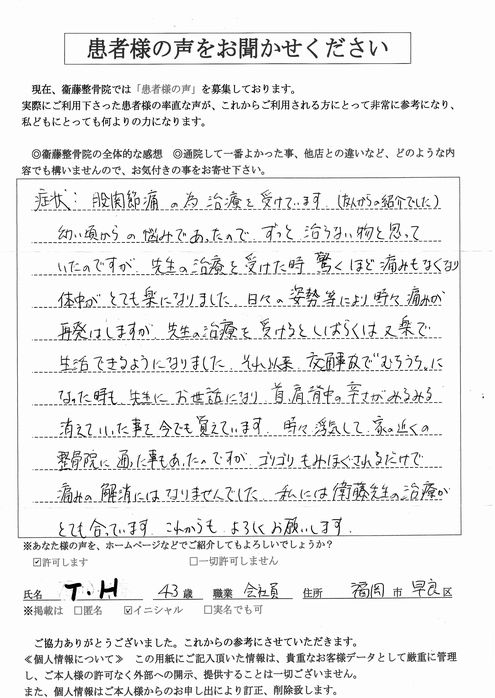 患者様の声をお聞かせください
現在、衞藤整骨院では「患者様の声」を募集しております。
実際にご利用下さった患者様の率直な声が、これからご利用される方にとって非常に参考になり、
私どもにとっても何よりの力になります。
◎衞藤整骨院の全体的な感想　◎通院して一番よかった事、他店との違いなど、どのような内
容でも構いませんので、お気付きの事をお寄せ下さい。
症状：股関節痛の為治療を受けています（友人からの紹介でした）
幼い頃からの悩みであったので ずっと治らない物と思って
いたのですが 先生の治療を受けた時 驚くほど痛みもなくなり
体中がとても楽になりました 日々の姿勢等により時々痛みが
再発はしますが 先生の治療を受けるとしばらくは又楽で
生活できるようになりました それ以来 交通事故で"むちうち"に
なった時も 先生にお世話になり 首、肩、背中の辛さがみるみる
消えていった事を今でも覚えています 時々浮気して 家の近くの
整骨院に通った事もあったのですが ゴリゴリもみほぐされるだけで
痛みの解消にはなりませんでした 私には衛藤先生の治療が
とても合っています これからもよろしくお願いします.
※あなた様の声を、ホームページなどでご紹介してもよろしいでしょうか？
☑許可します　□一切許可しません
氏名 T・H 43歳 職業 会社員 住所 福岡市早良区
※掲載は　□匿名　☑イニシャル　□実名でも可
ご協力ありがとうございました。これからの参考にさせていただきます。
≪個人情報について≫　この用紙にご記入頂いた情報は、貴重なお客様データとして厳重に管理
し、ご本人様の許可なく外部への開示、提供することは一切ございません。
また、個人情報はご本人様からのお申し出により訂正、削除致します。